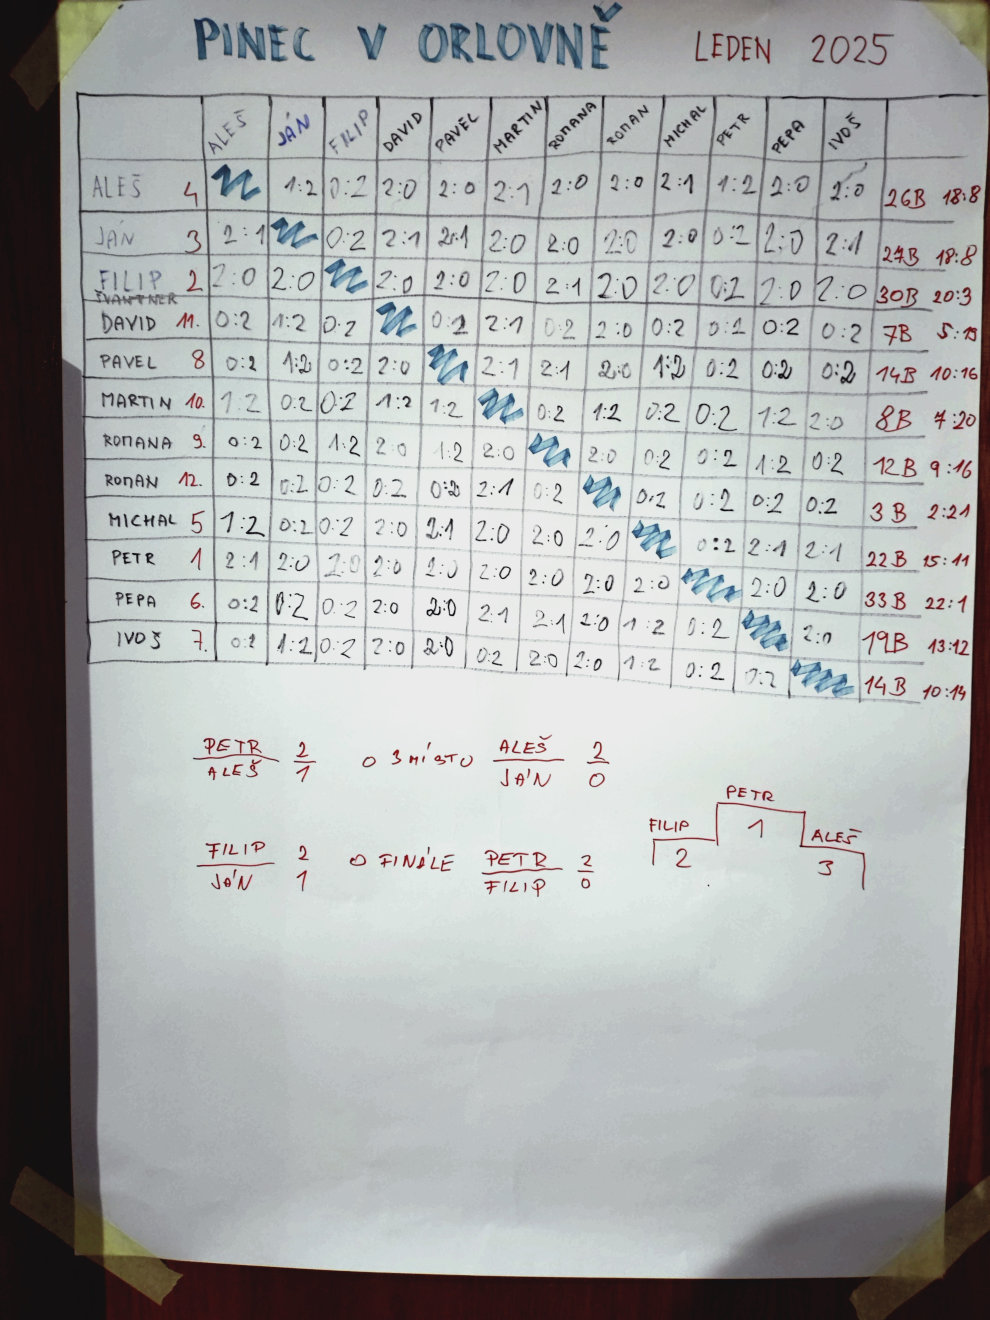 PINEC V ORLOVNĚ LEDEN 2025
ALEŠ JÁN FILIP DAVID PAVEL MARTIN ROMANA ROMAN MICHAL PETR PEPA IVOŠ
ALEŠ 4 1:2 0:2 2:0 2:0 2:1 2:0 2:0 2:1 1:2 2:0 2:0 26B 18:8
JÁN 3 2:1 0:2 2:1 2:1 2:0 2:0 2:0 2:0 0:2 2:0 2:1 27B 18:8
FILIP 2 2:0 2:0 2:0 2:0 2:0 2:1 2:0 2:0 0:2 2:0 2:0 30B 20:3
ŠVANTNER
DAVID 11. 0:2 1:2 0:2 0:2 2:1 0:2 2:0 0:2 0:2 0:2 0:2 7B 5:19
PAVEL 8 0:2 1:2 0:2 2:0 2:1 2:1 2:0 1:2 0:2 0:2 0:2 14B 10:16
MARTIN 10. 1:2 0:2 0:2 1:2 1:2 0:2 1:2 0:2 0:2 1:2 2:0 8B 7:20
ROMANA 9. 0:2 0:2 1:2 2:0 1:2 2:0 2:0 0:2 0:2 1:2 0:2 12B 9:16
ROMAN 12. 0:2 0:2 0:2 0:2 0:2 2:1 0:2 0:2 0:2 0:2 0:2 3B 2:21
MICHAL 5 1:2 0:2 0:2 2:0 2:1 2:0 2:0 2:0 0:2 2:1 2:1 22B 15:11
PETR 1 2:1 2:0 2:0 2:0 2:0 2:0 2:0 2:0 2:0 2:0 2:0 33B 22:1
PEPA 6. 0:2 0:2 0:2 2:0 2:0 2:1 2:1 2:0 1:2 0:2 2:0 19B 13:12
IVOŠ 7. 0:2 1:2 0:2 2:0 2:0 0:2 2:0 2:0 1:2 0:2 0:2 14B 10:14
PETR 2 O 3 MÍSTO ALEŠ 2
ALEŠ 1 JÁN 0
PETR
FILIP 1 ALEŠ
2 3
FILIP 2 O FINÁLE PETR 2
JÁN 1 FILIP 0